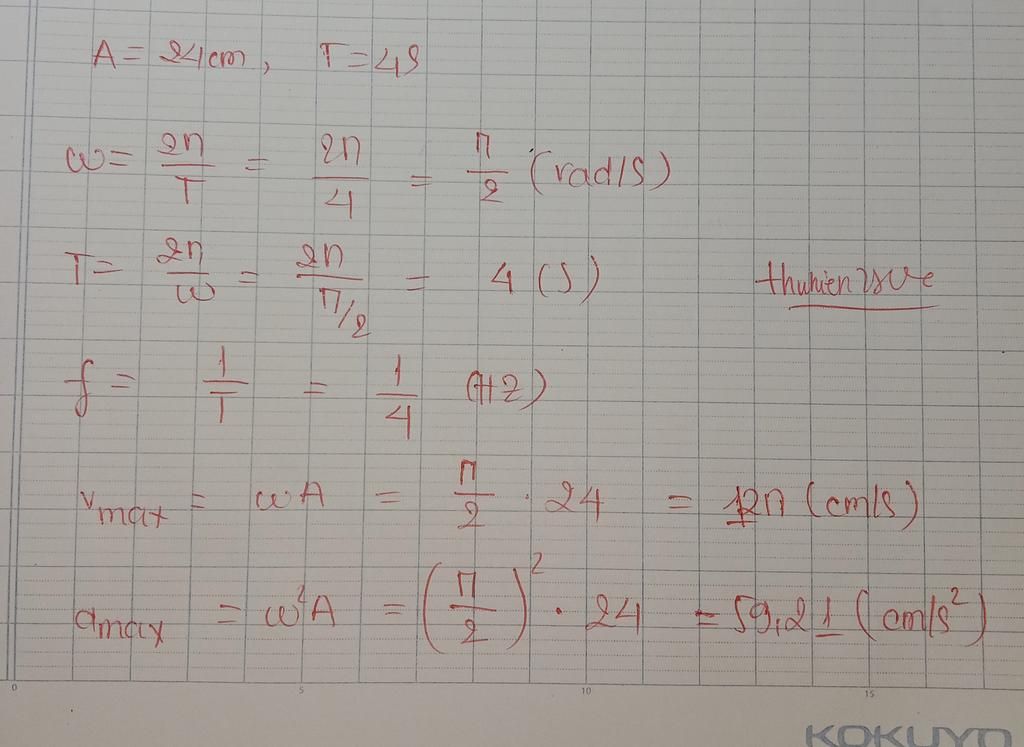 A = 24cm, T = 4s
ω = 2π/T = 2π/4 = π/2 (rad/s)
T = 2π/ω = 2π/π/2 = 4 (s)
thuhien
f = 1/T = 1/4 (Hz)
vmax = ωA = π/2 . 24 = 12π (cm/s)
amax = ω²A = (π/2)² . 24 = 59,21 (cm/s²)
0 5 10 15
KOKUYO